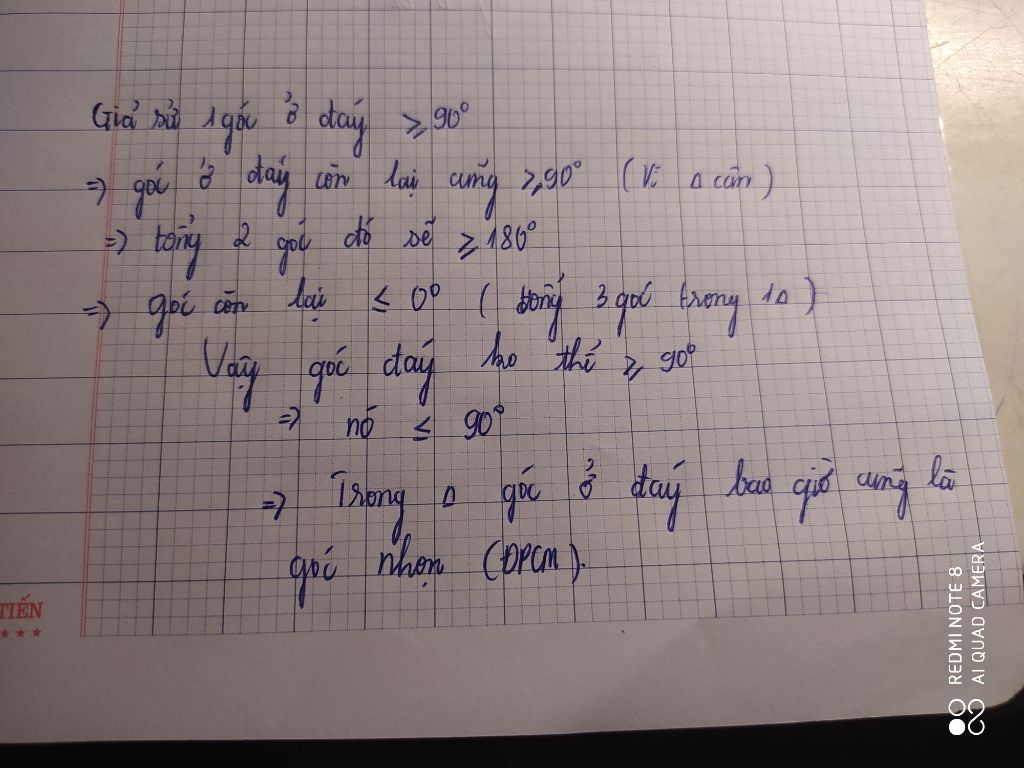 Giả sử 1 góc ở đáy ⩾ 90°
=> góc ở đáy còn lại cũng ⩾ 90° ( Vì Δ cân )
=> tổng 2 góc đó sẽ ⩾ 180°
=> góc còn lại ≤ 0° ( tổng 3 góc trong 1Δ )
Vậy góc đáy ko thể ⩾ 90°
=> nó ≤ 90°
=> Trong Δ góc ở đáy bao giờ cũng là
góc nhọn (ĐPCM).
TIẾN
REDMI NOTE 8
AI QUAD CAMERA